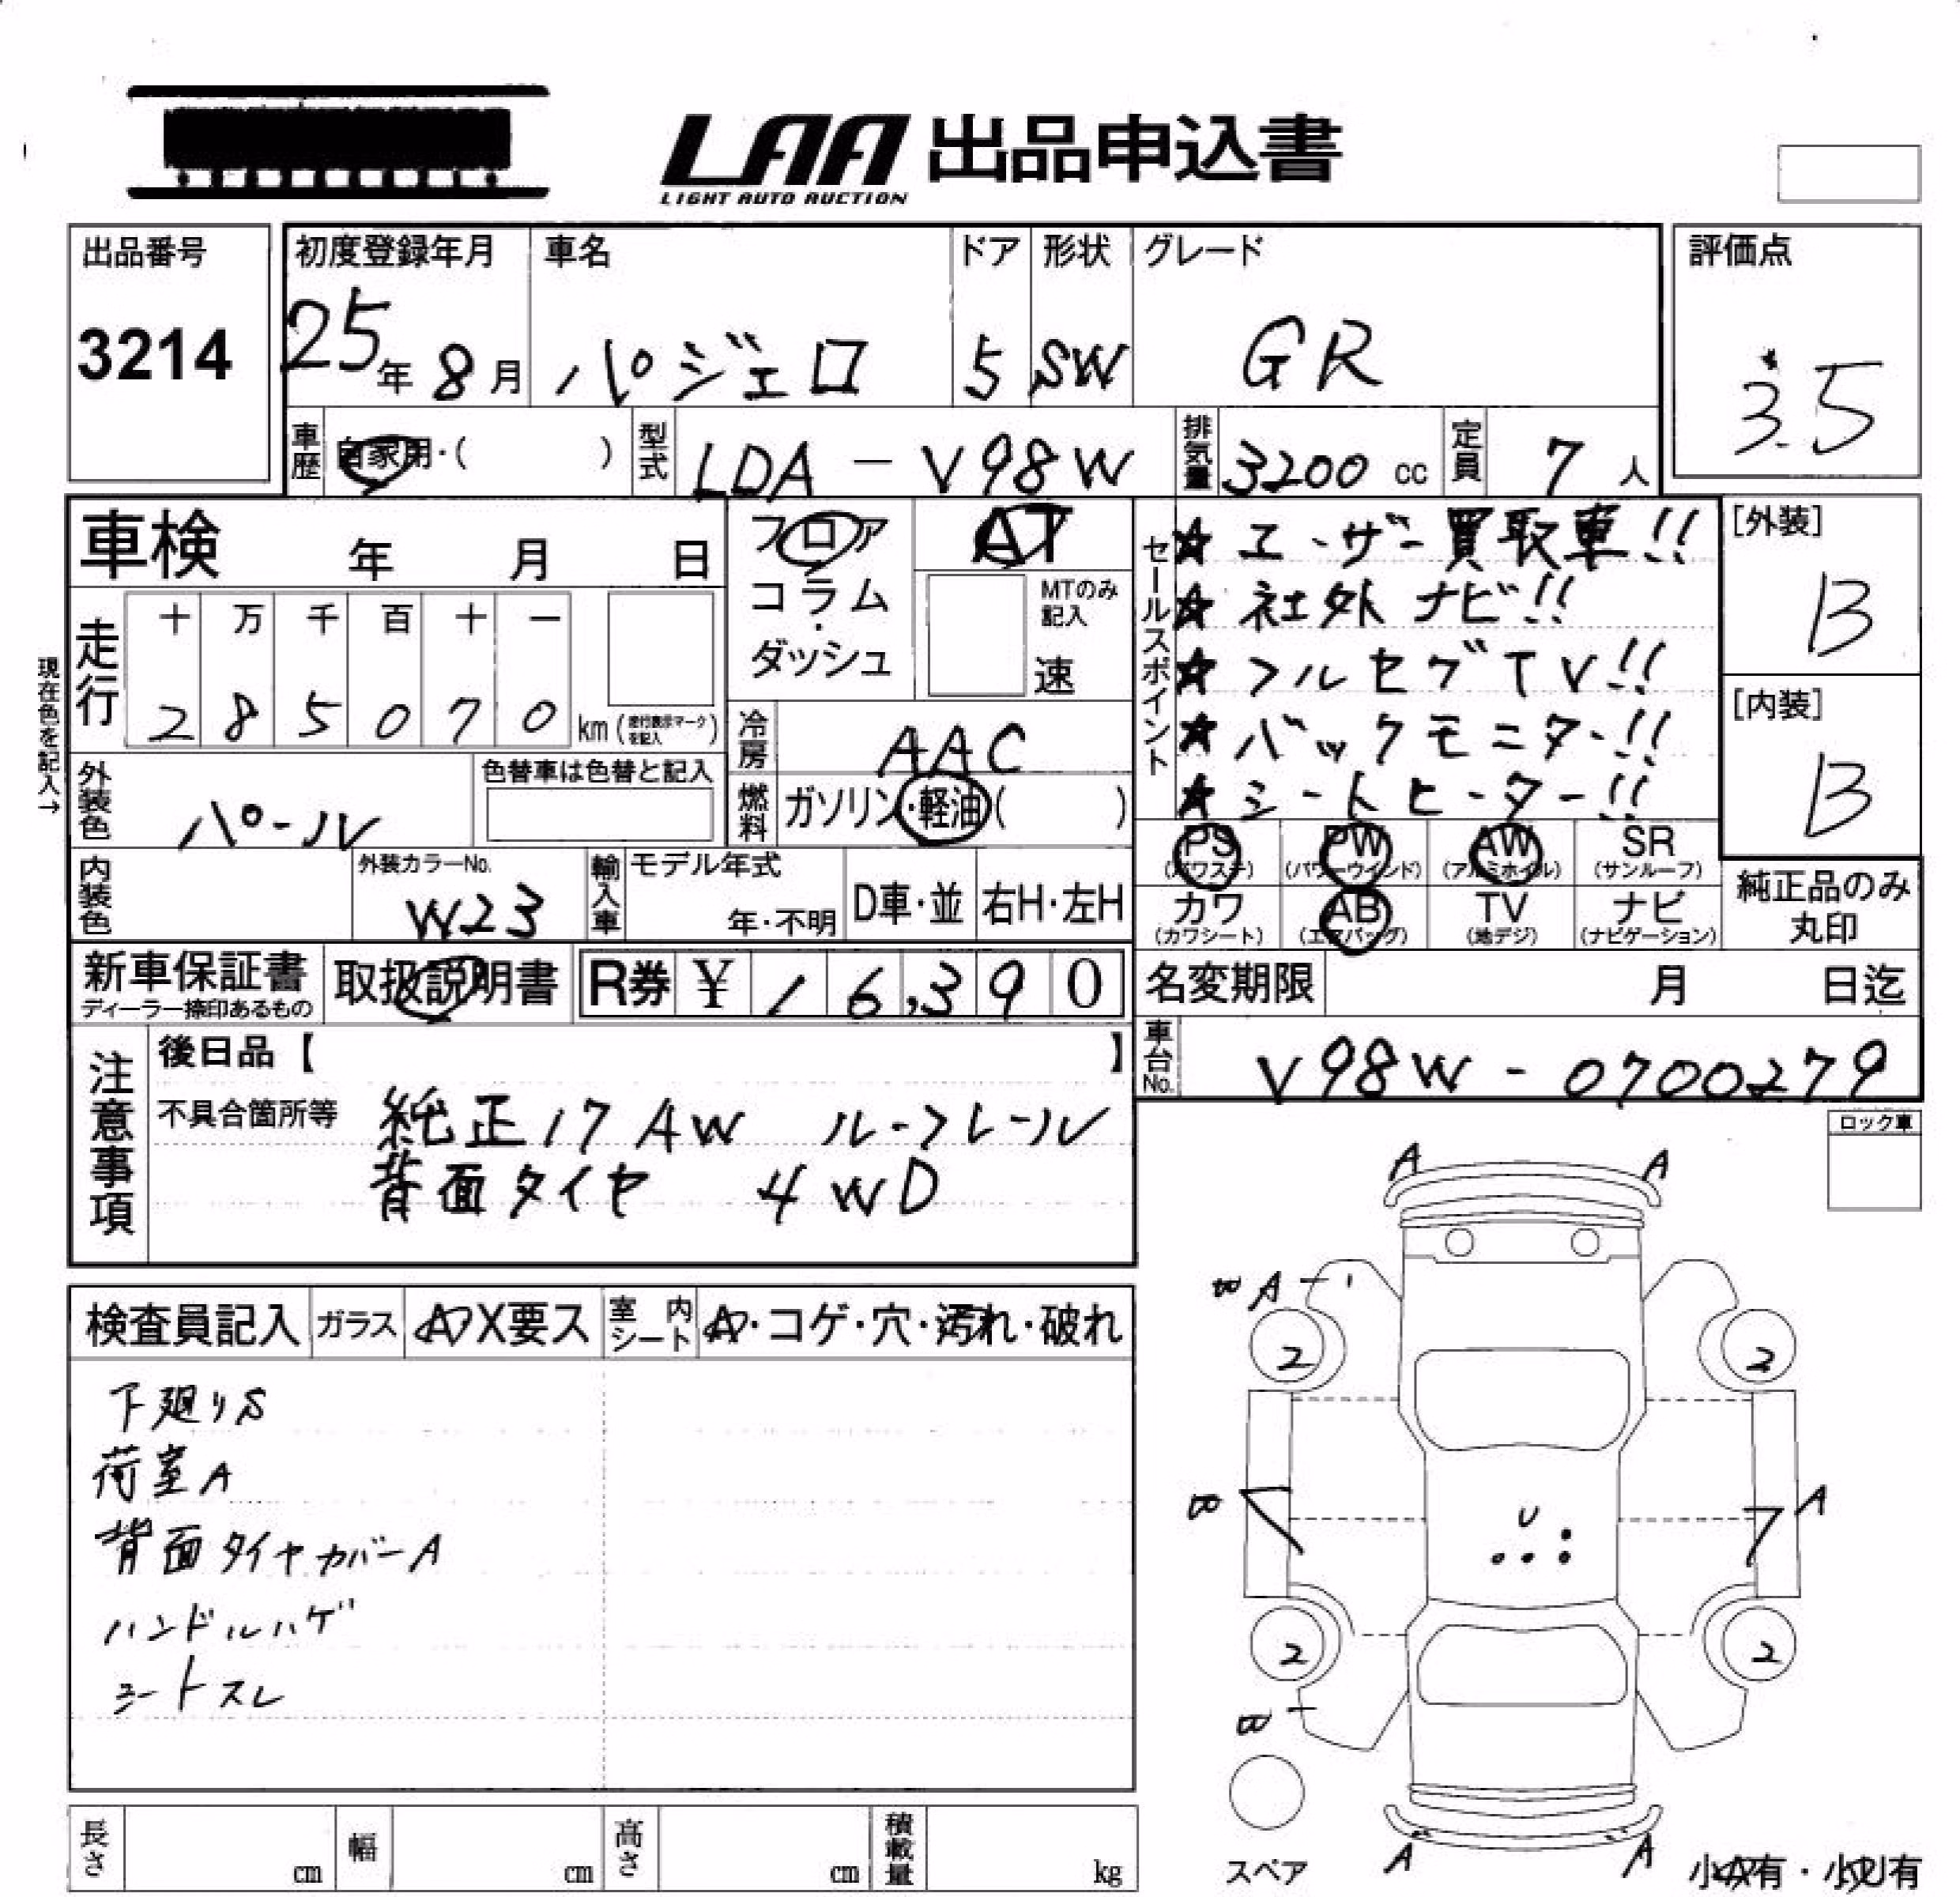 LAA 出品申込書
LIGHT AUTO AUCTION
出品番号
3214
初度登録年月
25年 8月
車名
パジェロ
ドア
5
形状
SW
グレード
GR
評価点
3.5
車歴 自家用・( )
型式 LDA-V98W
排気量 3200 cc
定員 7 人
車検 年 月 日
フロア
コラム
ダッシュ
AT
MTのみ
記入
速
現在色を記入→
走行
十 万 千 百 十 一
2 8 5 0 7 0 km (走行表示マークを記入)
冷房 AAC
燃料 ガソリン・軽油( )
外装色 パール
色替車は色替と記入
内装色
外装カラーNo.
W23
輸入車
モデル年式
年・不明
D車・並
右H・左H
セールスポイント
★ユーザー買取車!!
★社外ナビ!!
★フルセグTV!!
★バックモニター!!
★シートヒーター!!
[外装]
B
[内装]
B
PS (パワステ)
PW (パワーウインド)
AW (アルミホイル)
SR (サンルーフ)
カワ (カワシート)
AB (エアバッグ)
TV (地デジ)
ナビ (ナビゲーション)
純正品のみ
丸印
新車保証書
ディーラー捺印あるもの
取扱説明書
R券 ¥ 16,390
名変期限 月 日迄
車台No. V98W-0700279
注意事項
後日品【 】
不具合箇所等 純正17AW ルーフレール
背面タイヤ 4WD
ロック車
検査員記入
ガラス A・X要ス
室内シート A・コゲ・穴・汚れ・破れ
下廻りS
荷室A
背面タイヤカバーA
ハンドルハゲ
シートスレ
A A
B A
2 2
B U A
2 2
B
A A
スペア
小A有・小U有
長さ cm
幅 cm
高さ cm
積載量 kg